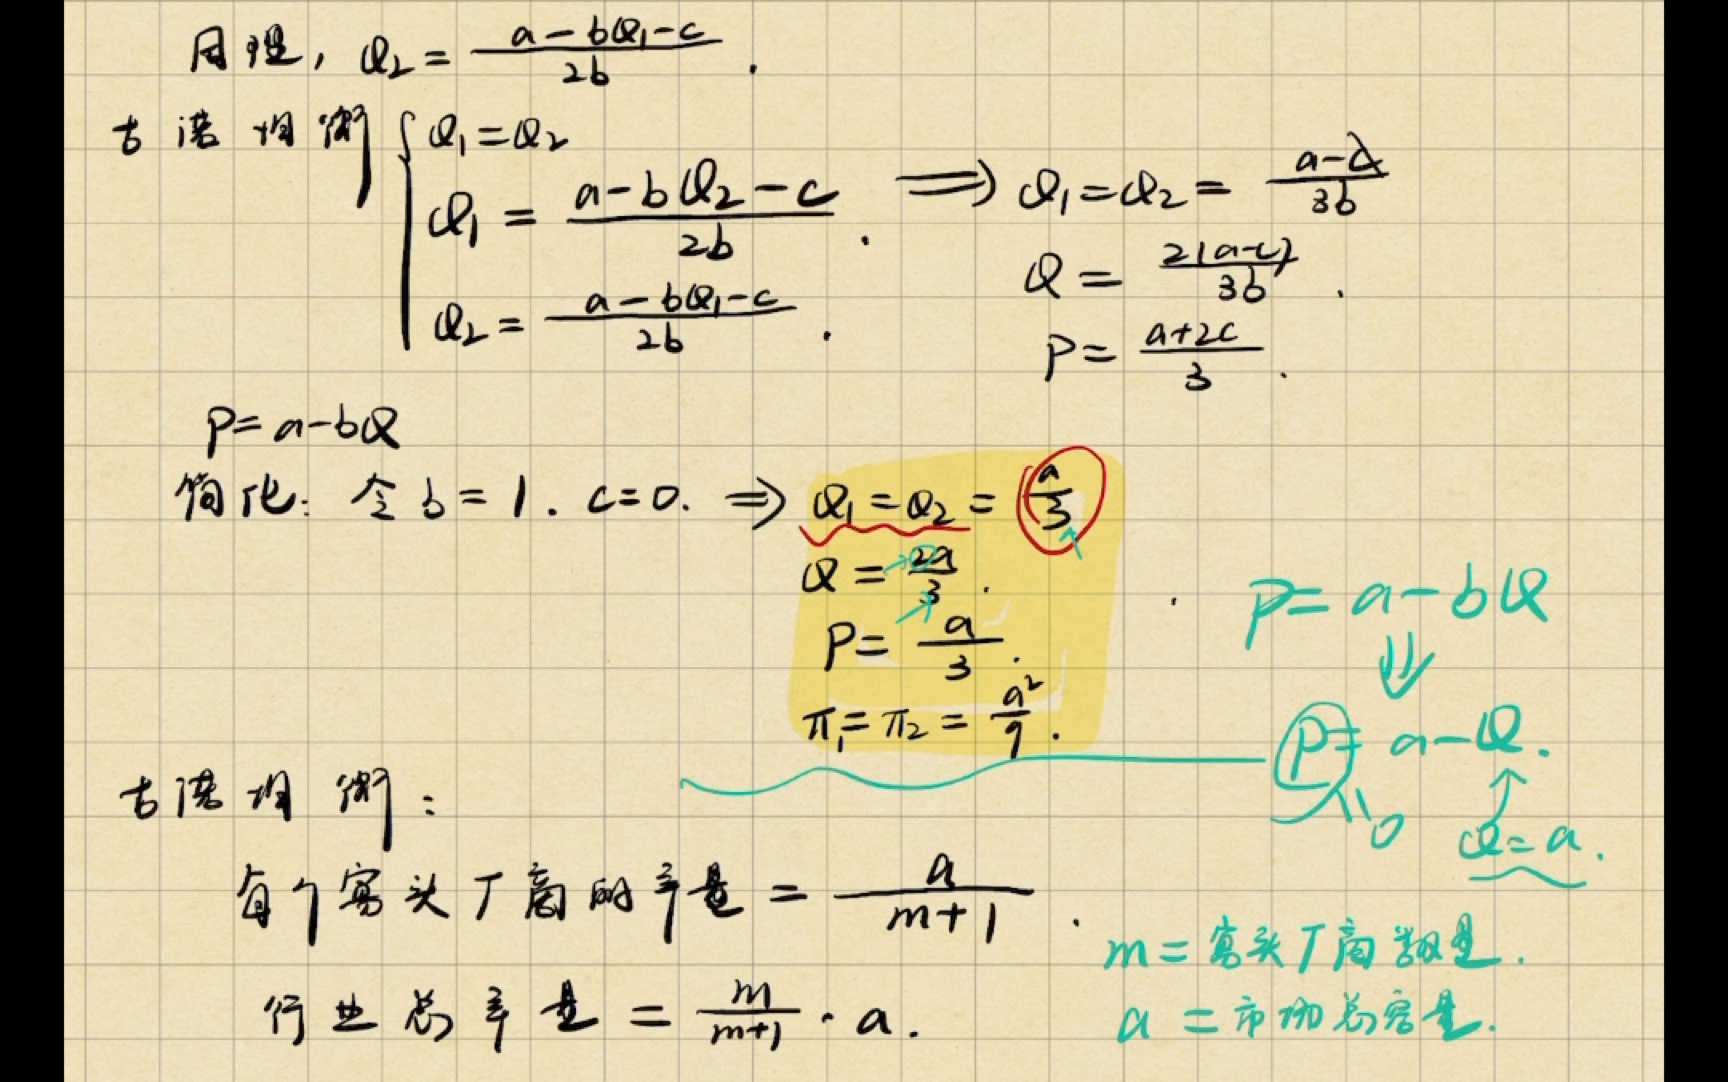 同理, Q₂ = (a-bQ₁-c)/2b .
古诺均衡 { Q₁=Q₂
Q₁ = (a-bQ₂-c)/2b .
Q₂ = (a-bQ₁-c)/2b .
⟹ Q₁=Q₂ = (a-c)/3b
Q = 2(a-c)/3b .
P = (a+2c)/3 .
P=a-bQ
简化: 令b=1. c=0. ⟹ Q₁=Q₂ = a/3
Q = 2a/3 .
P = a/3 .
π₁=π₂ = a²/9 .
P=a-bQ
⇓
P=a-Q.
0
Q=a.
古诺均衡:
每个寡头厂商的产量 = a/(m+1) .
行业总产量 = m/(m+1) · a.
m = 寡头厂商数量.
a = 市场总容量.